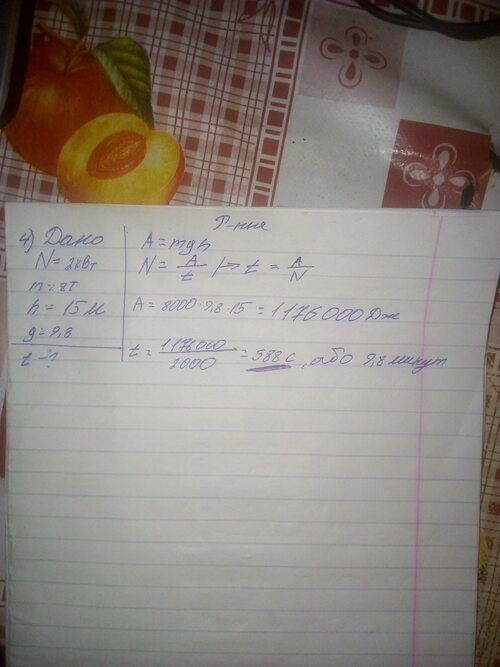 Р-ння
4) Дано
N = 2кВт
m = 8т
h = 15м
g = 9,8
t - ?
A = mgh
N = A/t |=> t = A/N
A = 8000·9,8·15 = 1176000Дж
t = 1176000/2000 = 588с, або 9,8минут